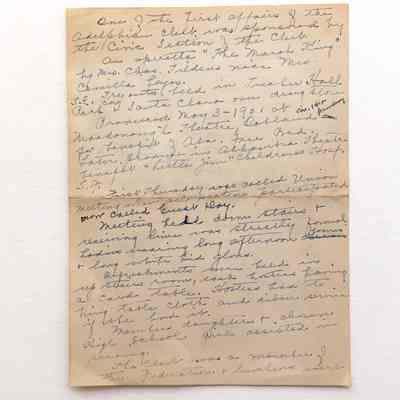 One of the First affairs of the
Adelphian Club was sponsored by
the Civic Section of the Club
An operetta "The Marsh King"
by Mrs. Chas. niece Mrs
Camilla
held in Hall
Park & Santa Clara over drug store
Produced May 3-1901 at
Macdonough Theatre, Oakland
for benefit of Ala. Free
Later, brought in Theatre
benefit "Little Jim" Childrens Hosp.
S.F.
First Thursday was called Union
meeting all participated
now called Guest Day.
Meeting held down stairs &
receiving line was strictly formal
ladies wearing long afternoon gowns
& long white kid gloves.
Refreshments were held in
up stairs room, each hostess having
a card table. Hostess had to
bring table cloth and silver service
if she had it.
Members daughters & chosen
High School girls assisted in
serving.
The Club was a member of
the Federation &